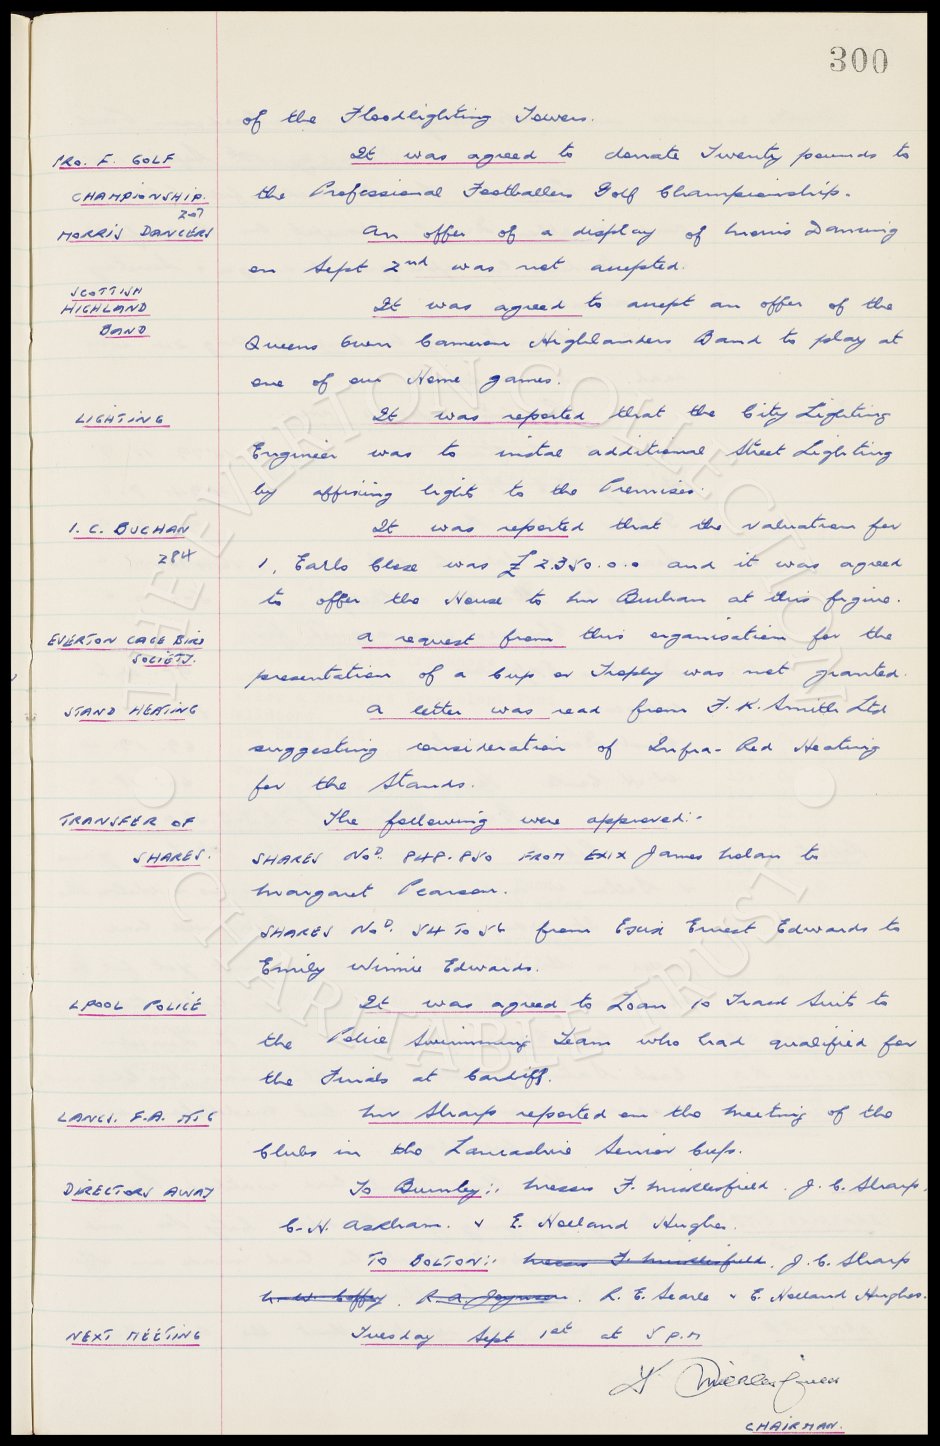 300
of the Floodlighting Towers.
PRO. F. GOLF It was agreed to donate Twenty pounds to
CHAMPIONSHIP. the Professional Footballers Golf Championship.
207
MORRIS DANCERS An offer of a display of Morris Dancing
on Sept 2nd was not accepted.
SCOTTISH
HIGHLAND It was agreed to accept an offer of the
BAND Queens Own Cameron Highlanders Band to play at
one of our Home games.
LIGHTING It was reported that the City Lighting
Engineer was to instal additional Street Lighting
by affixing lights to the Premises.
I. C. BUCHAN It was reported that the valuation for
284 1, Earls Close was £2350.0.0 and it was agreed
to offer the House to Mr Buchan at this figure.
EVERTON CAGE BIRD A request from this organisation for the
SOCIETY. presentation of a Cup or Trophy was not granted.
STAND HEATING A letter was read from F. K. Smith Ltd
suggesting consideration of Infra-Red Heating
for the Stands.
TRANSFER OF The following were approved:-
SHARES. SHARES NOD. 848.850 FROM EXIX James Nolan to
Margaret Pearson.
SHARES NOD. 54 TO 56 from Ernest Edwards to
Emily Winnie Edwards.
LPOOL POLICE It was agreed to Loan 10 Track Suits to
the Police Swimming Team who had qualified for
the Finals at Cardiff.
LANCS. F.A. MTG Mr Sharp reported on the Meeting of the
Clubs in the Lancashire Senior Cups.
DIRECTORS AWAY To Burnley:. Messrs F. Micklesfield. J. C. Sharp.
C. H. Askham. & E. Holland Hughes.
TO BOLTON:. Messrs F. Micklesfield. J. C. Sharp
N. W. Coffey. R. A. Joynson. R. E. Searle & E. Holland Hughes.
NEXT MEETING Tuesday Sept 1st at 5 P.M
CHAIRMAN.
THE EVERTON COLLECTION
CHARITABLE TRUST